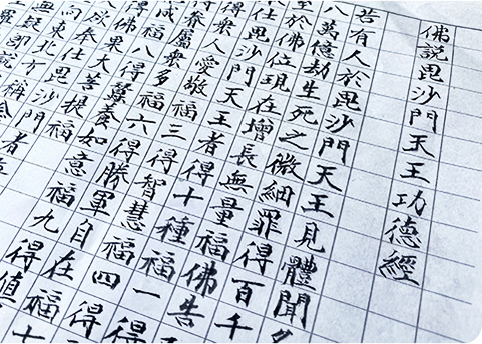 佛說毘沙門天王功德經
若有人於毘沙門天王見體聞
八萬億劫生死之微細罪得百千
至於佛位現在增長無量福佛告
仕毘沙門天王者得十種福一
得衆人愛敬福三得智慧福四得
眷屬衆多福六得勝軍自在得
成福八得蠶養如意福九得值
得佛果大菩提福
奉仕毘沙門者
向東北方稱
疑即説